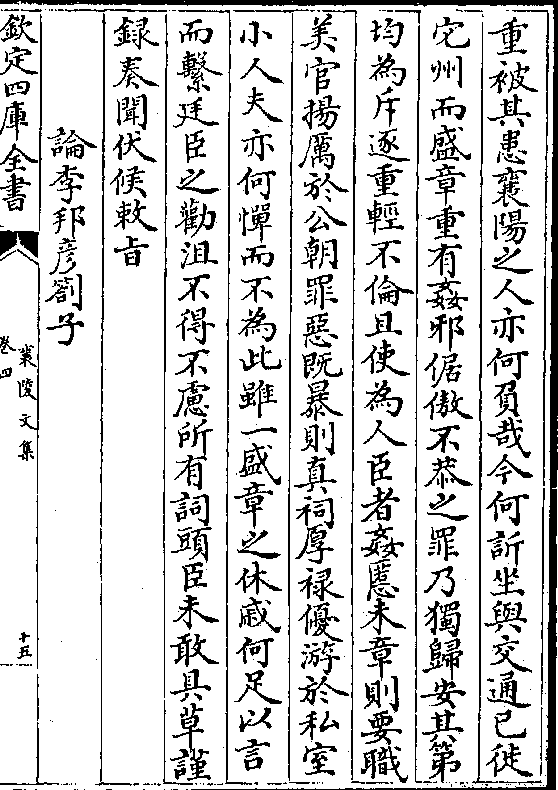 重被其患襄陽之人亦何負哉今何訢坐與交通已徙
它州而盛章重有姦邪倨傲不恭之罪乃獨歸安其第
均為斥逐重輕不倫且使為人臣者姦慝未章則要職
美官揚厲於公朝罪惡既暴則真祠厚禄優游於私室
小人夫亦何憚而不為此雖一盛章之休戚何足以言
而繫廷臣之勸沮不得不慮所有詞頭臣未敢具草謹
録奏聞伏候敕㫖
論李邦彦劄子
欽定四庫全書
襄陵文集
卷四
十五